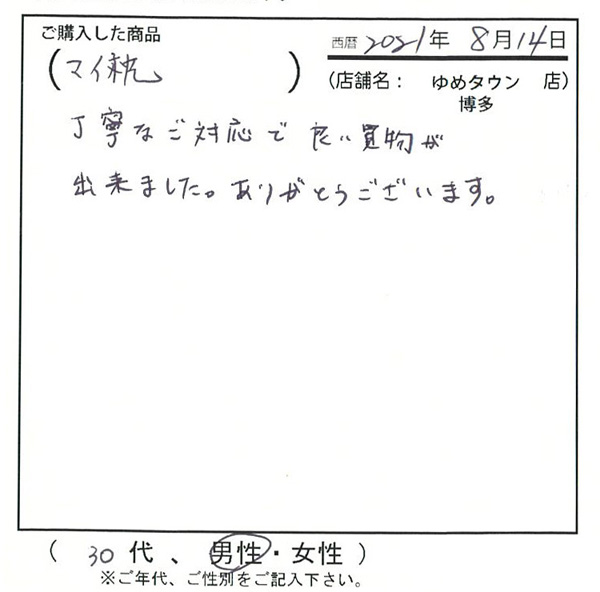 ご購入した商品
西暦 2021年 8月14日
(マイ枕)
(店舗名： ゆめタウン 店)
博多
丁寧なご対応で良い買物が
出来ました。ありがとうございます。
( 30 代 、 男性・女性 )
※ご年代、ご性別をご記入下さい。